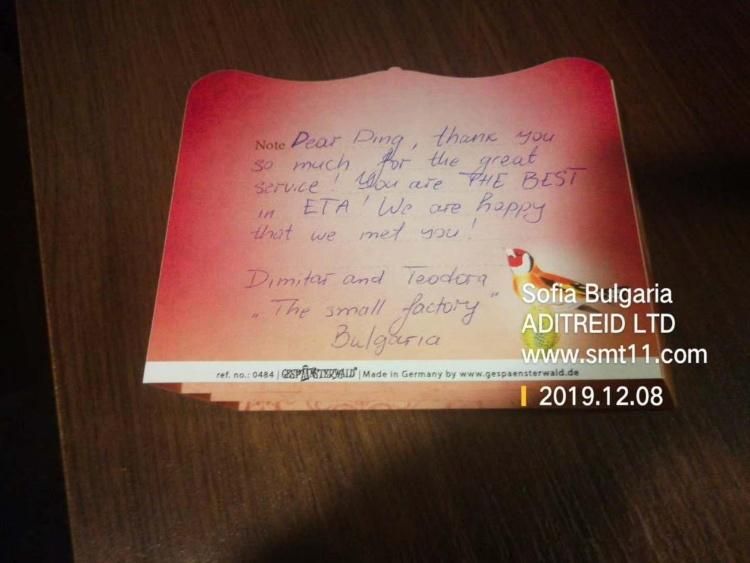 Note Dear Ding, thank you
so much for the great
service! You are THE BEST
in ETA! We are happy
that we met you!
Dimitar and Teodora
„The small factory"
Bulgaria
ref. no.: 0484 | GESPÄNSTERWALD® | Made in Germany by www.gespaensterwald.de
Sofia Bulgaria
ADITREID LTD
www.smt11.com
2019.12.08